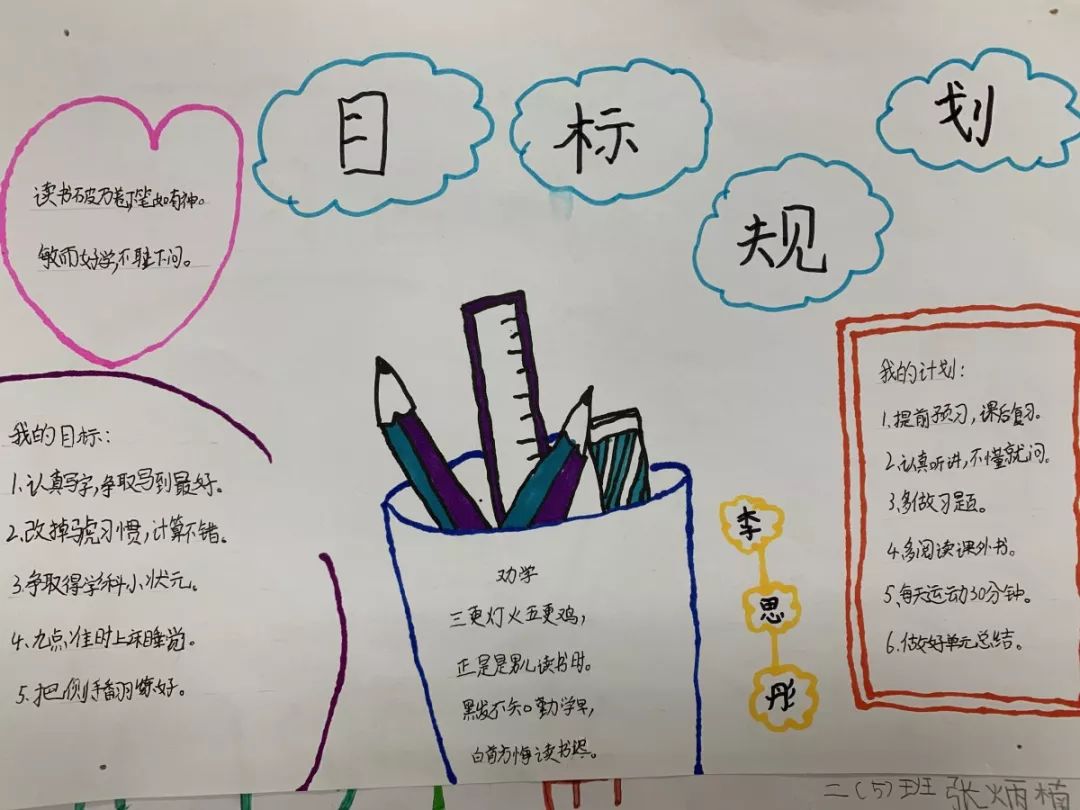 目标规划
读书破万卷,下笔如有神。
敏而好学,不耻下问。
我的目标:
1.认真写字,争取写到最好。
2.改掉马虎习惯,计算不错。
3.争取得学科小状元。
4.九点准时上床睡觉。
5.把侧手翻练好。
劝学
三更灯火五更鸡,
正是是男儿读书时。
黑发不知勤学早,
白首方悔读书迟。
李思彤
我的计划:
1.提前预习,课后复习。
2.认真听讲,不懂就问。
3.多做习题。
4.多阅读课外书。
5.每天运动30分钟。
6.做好单元总结。
二(5)班 张炳楠